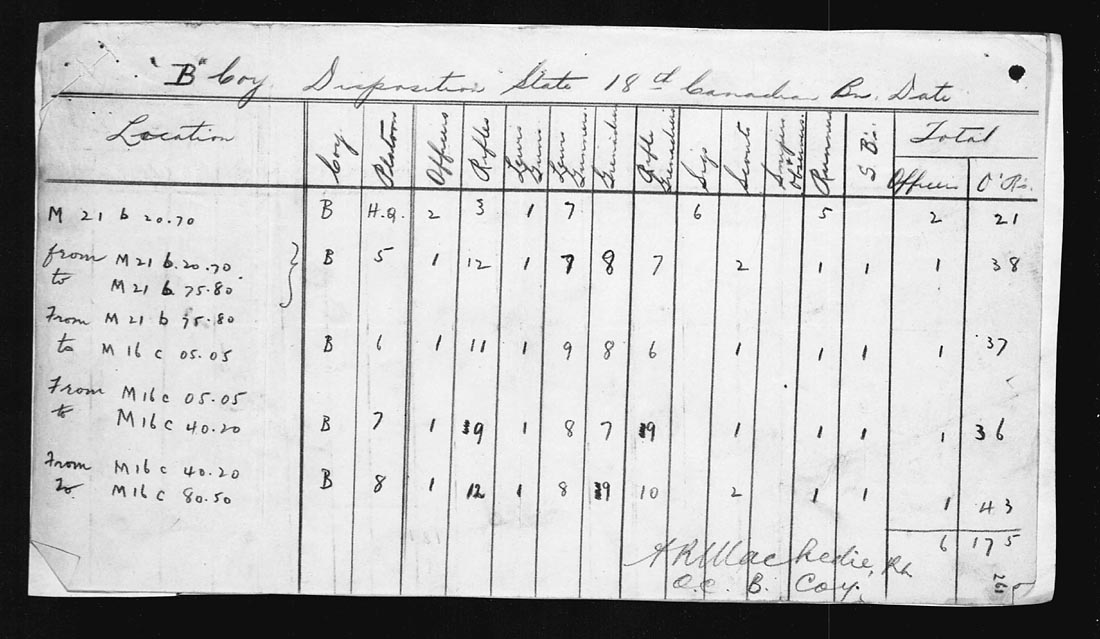 "B" Coy Disposition State 18th Canadian Bn. Date
Location Coy Platoon Officers Rifles Lewis Guns Lewis Gunners Grenadiers Rifle Grenadiers Sigs Scouts Snipers & Observers Runners S B's. Total
Officers O'Rs.
M 21 b 20.70 B H.Q. 2 3 1 7 6 5 2 21
from M 21 b.20.70 B 5 1 12 1 7 8 7 2 1 1 1 38
to M 21 b 75.80
From M 21 b 75.80
to M 16 c 05.05 B 6 1 11 1 9 8 6 1 1 1 1 37
From M 16 c 05.05
to M 16 c 40.20 B 7 1 9 1 8 7 9 1 1 1 1 36
From M 16 c 40.20
to M 16 c 80.50 B 8 1 12 1 8 9 10 2 1 1 1 43
6 175
O.C. B. Coy.